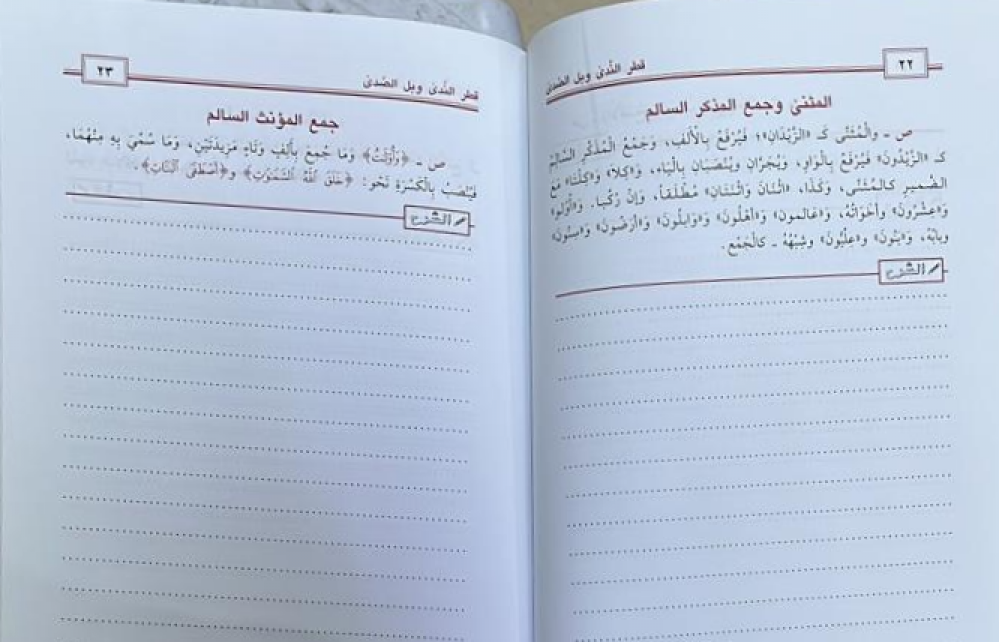 ٢٢
قطر النَّدىٰ وبل الصَّدىٰ
المثنىٰ وجمع المذكر السالم
ص ـ والْمُثَنَّى كَـ «الزَّيْدَانِ»؛ فَيُرْفَعُ بِالأَلِفِ، وَجَمْعُ الْمُذَكَّرِ السَّالِمُ
كَـ «الزَّيْدُونَ» فَيُرْفَعُ بِالْوَاوِ، وَيُجَرَّانِ ويُنْصَبَانِ بِالْيَاءِ، وَ«كِلاَ» وَ«كِلْتَا» مَعَ
الضَّميرِ كَالمُثَنَّى، وَكَذَا، «اثْنَانِ وَاثْنَتَانِ» مُطْلَقاً، وَإِنْ رُكِّبَا. وَ«أُولُو»
وَ«عِشْرُونَ» وأخوَاتُهُ، وَ«عَالَمونَ» وَ«أَهْلُونَ» وَ«وَابِلُونَ» وَ«أَرَضُونَ» وَ«سِنُونَ»
وبابُهُ، وَ«بَنُونَ» وَ«عِلِّيُّونَ» وشِبْهُهُ ـ كالْجَمْعِ.
الشرح
٢٣
قطر النَّدىٰ وبل الصَّدىٰ
جمع المؤنث السالم
ص ـ ﴿وَأُوْلَٰتُ﴾ وَمَا جُمِعَ بِأَلِفٍ وَتَاءٍ مَزِيدَتَيْنِ، وَمَا سُمِّيَ بِهِ مِنْهُمَا،
فَيُنْصَبُ بِالْكَسْرَةِ نَحْوُ: ﴿خَلَقَ ٱللَّهُ ٱلسَّمَٰوَٰتِ﴾ و﴿أَصْطَفَى ٱلْبَنَاتِ﴾.
الشرح